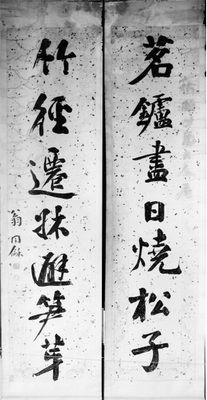 茗鑪盡日燒松子
竹徑遷牀避笋芽
翁同龢